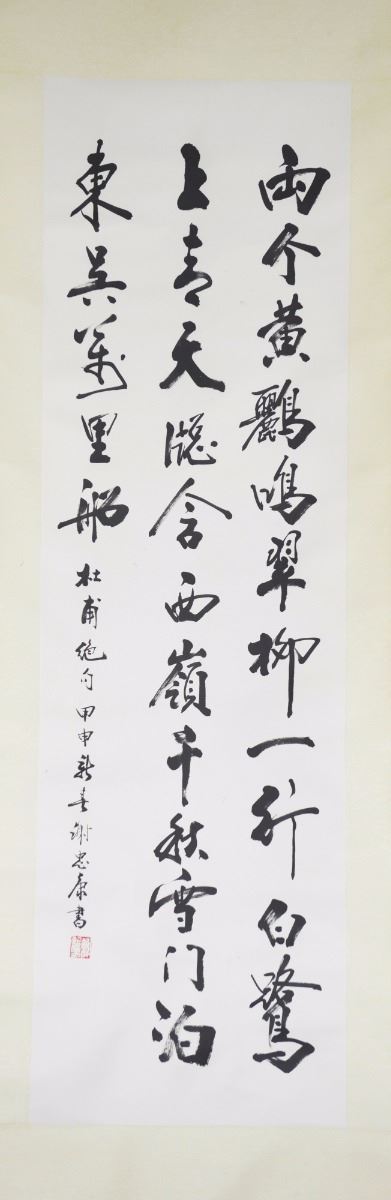 兩个黄鸝鳴翠柳一行白鷺
上青天窓含西嶺千秋雪门泊
東吴萬里船
杜甫绝句甲申新春谢忠康書